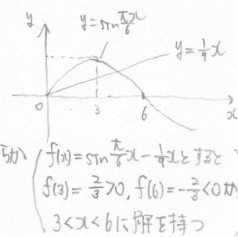 y
y=sin πx/6
y=1/9 x
0
3
6
x
f(x)=sin π/6 x - 1/9 x とすると
f(3)=2/3>0, f(6)=-2/3<0 か
3<x<6に解を持つ